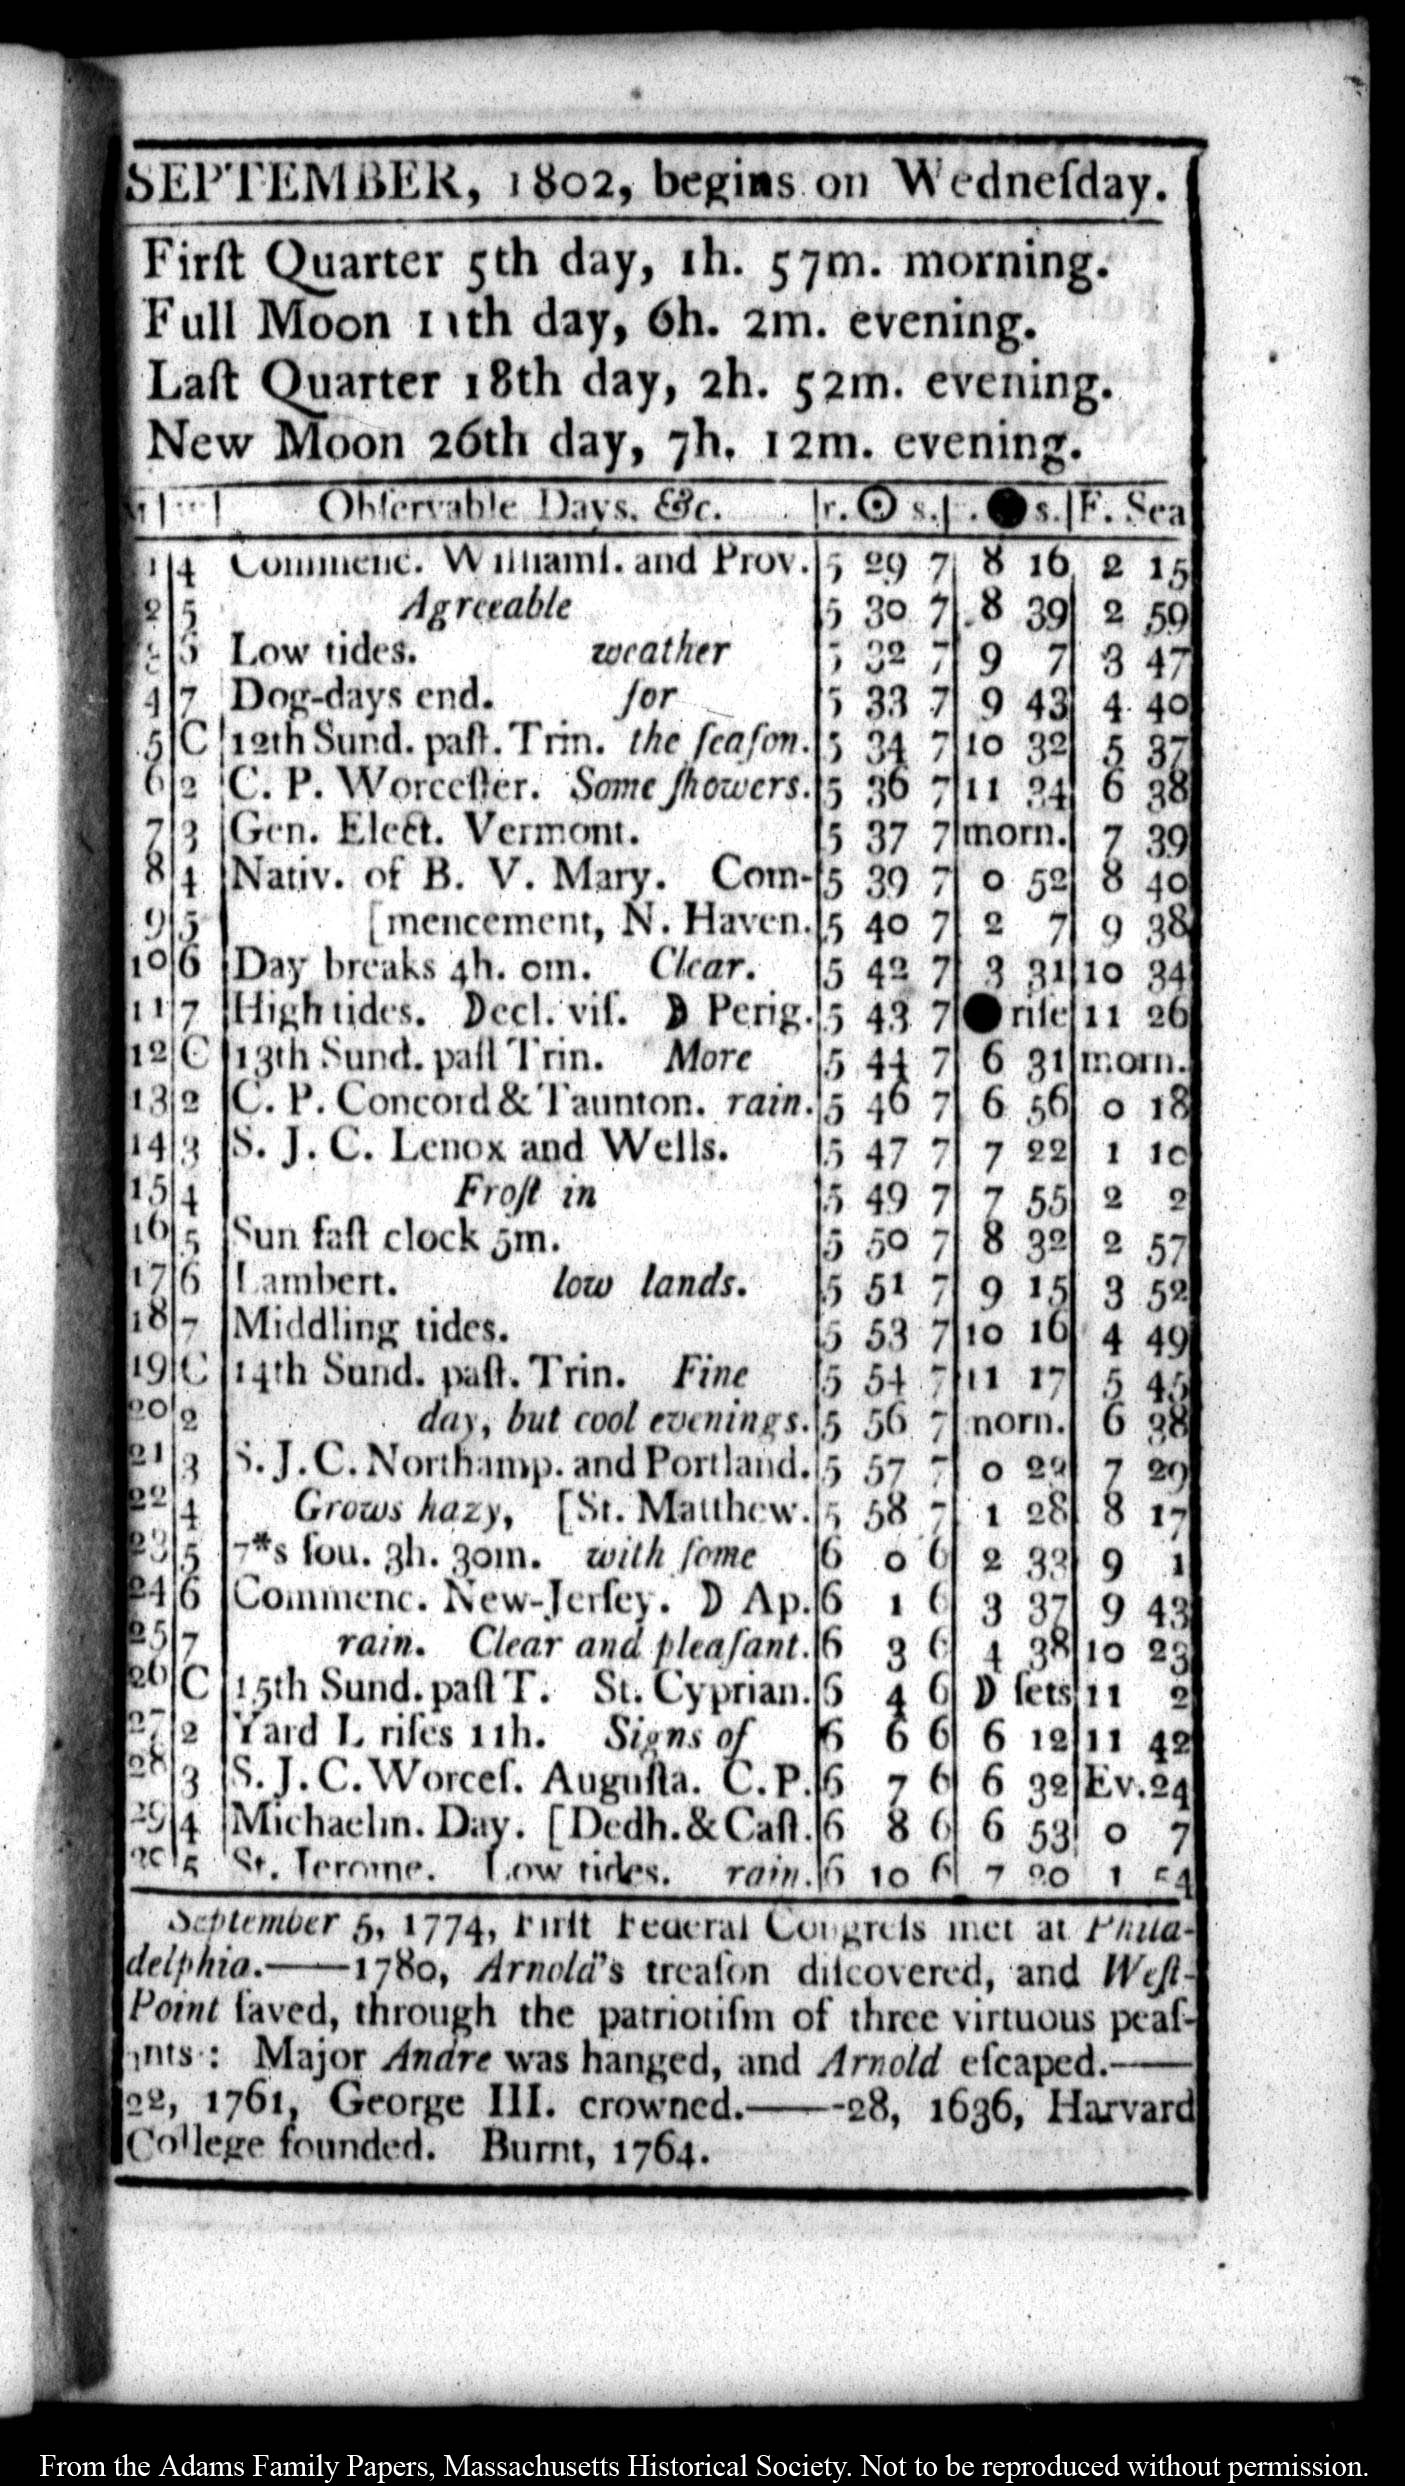 SEPTEMBER, 1802, begins on Wedneſday.
Firſt Quarter 5th day, 1h. 57m. morning.
Full Moon 11th day, 6h. 2m. evening.
Laſt Quarter 18th day, 2h. 52m. evening.
New Moon 26th day, 7h. 12m. evening.
Obſervable Days, &c. r. ☉ s. ● s. F. Sea
1 4 Commenc. Williamſ. and Prov. 5 29 7 8 16 2 15
2 5 Agreeable 5 30 7 8 39 2 59
3 6 Low tides. weather 5 32 7 9 7 3 47
4 7 Dog-days end. for 5 33 7 9 43 4 40
5 C 12th Sund. paſt. Trin. the ſeaſon. 5 34 7 10 32 5 37
6 2 C. P. Worceſter. Some ſhowers. 5 36 7 11 34 6 38
7 3 Gen. Elect. Vermont. 5 37 7 morn. 7 39
8 4 Nativ. of B. V. Mary. Com- 5 39 7 0 52 8 40
9 5 [mencement, N. Haven. 5 40 7 2 7 9 38
10 6 Day breaks 4h. 0m. Clear. 5 42 7 3 31 10 34
11 7 High tides. Decl. viſ. ☽ Perig. 5 43 7 ● riſe 11 26
12 C 13th Sund. paſt Trin. More 5 44 7 6 31 morn.
13 2 C. P. Concord & Taunton. rain. 5 46 7 6 56 0 18
14 3 S. J. C. Lenox and Wells. 5 47 7 7 22 1 10
15 4 Froſt in 5 49 7 7 55 2 2
16 5 Sun faſt clock 5m. 5 50 7 8 32 2 57
17 6 Lambert. low lands. 5 51 7 9 15 3 52
18 7 Middling tides. 5 53 7 10 16 4 49
19 C 14th Sund. paſt. Trin. Fine 5 54 7 11 17 5 45
20 2 day, but cool evenings. 5 56 7 morn. 6 38
21 3 S. J. C. Northamp. and Portland. 5 57 7 0 22 7 29
22 4 Grows hazy, [St. Matthew. 5 58 7 1 28 8 17
23 5 7*s ſou. 3h. 30m. with ſome 6 0 6 2 33 9 1
24 6 Commenc. New-Jerſey. ☽ Ap. 6 1 6 3 37 9 43
25 7 rain. Clear and pleaſant. 6 3 6 4 38 10 23
26 C 15th Sund. paſt T. St. Cyprian. 6 4 6 ☽ ſets 11 2
27 2 Yard L riſes 11h. Signs of 6 6 6 6 12 11 42
28 3 S. J. C. Worceſ. Auguſta. C. P. 6 7 6 6 32 Ev. 24
29 4 Michaelm. Day. [Dedh. & Caſt. 6 8 6 6 53 0 7
30 5 St. Jerome. Low tides. rain. 6 10 6 7 20 1 54
September 5, 1774, Firſt Federal Congreſs met at Phila-
delphia.——1780, Arnold's treaſon diſcovered, and Weſt-
Point ſaved, through the patriotiſm of three virtuous peaſ-
ants: Major Andre was hanged, and Arnold eſcaped.——
22, 1761, George III. crowned.——28, 1636, Harvard
College founded. Burnt, 1764.
From the Adams Family Papers, Massachusetts Historical Society. Not to be reproduced without permission.